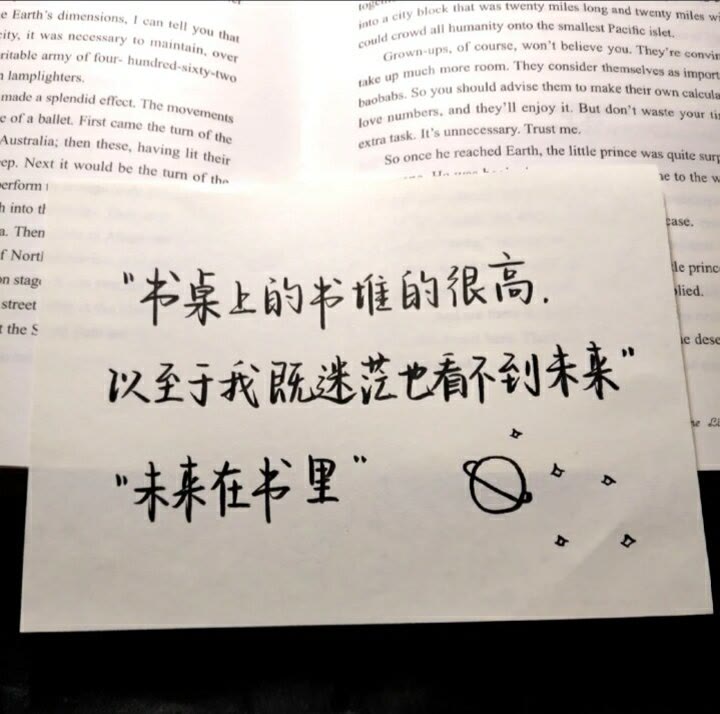 e Earth's dimensions, I can tell you that
city, it was necessary to maintain, over
ritable army of four- hundred-sixty-two
lamplighters.
made a splendid effect. The movements
e of a ballet. First came the turn of the
Australia; then these, having lit their
ep. Next it would be the turn of the
erform
h into th
a. Then
f Nort
on stag
street
t the S
into a city block that was twenty miles long and twenty miles wi
could crowd all humanity onto the smallest Pacific islet.
Grown-ups, of course, won't believe you. They're convin
take up much more room. They consider themselves as import
baobabs. So you should advise them to make their own calcula
love numbers, and they'll enjoy it. But don't waste your ti
extra task. It's unnecessary. Trust me.
So once he reached Earth, the little prince was quite surp
e to the w
ease.
le princ
lied.
e dese
"书桌上的书堆的很高.
以至于我既迷茫也看不到未来"
"未来在书里"